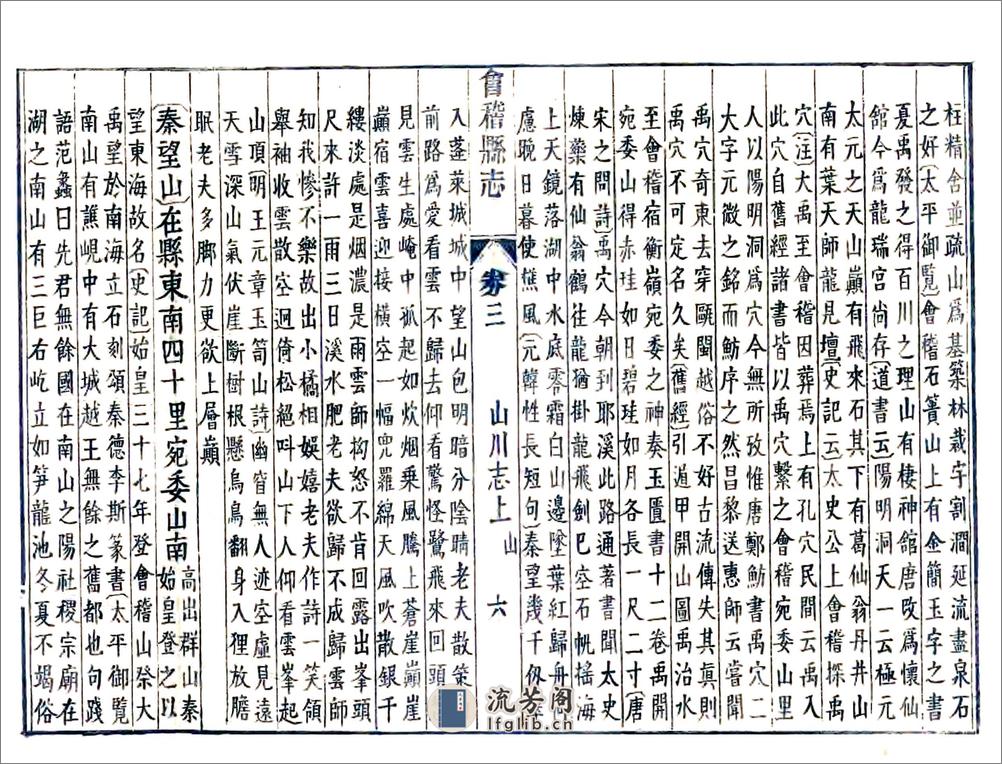 枉精舍並疏山爲基築林裁宇割澗延流盡泉石
之好(太平御覽)會稽石簣山上有金簡玉字之書
夏禹發之得百川之理山有棲神舘唐攺爲懷仙
舘今爲龍瑞宮尚存(道書)云陽明洞天一云極元
太元之天山巔有飛來石其下有葛仙翁丹井山
南有葉天師龍見壇(史記)云太史公上會稽探禹
穴(注)大禹至會稽因葬焉上有孔穴民間云禹入
此穴自舊經諸書皆以禹穴繫之會稽宛委山里
人以陽明洞爲禹穴今無所攷惟唐鄭魴書禹穴二
大字元微之銘而魴序之然昌黎送惠師云嘗聞
禹穴奇東去穿甌閩越俗不好古流傳失其真則
禹穴不可定名久矣(舊經)引遁甲開山圖禹治水
至會稽宿衡嶺宛委之神奏玉匱書十二卷禹開
宛委山得赤珪如日碧珪如月各長一尺二寸(唐
宋之問詩)禹穴今朝到耶溪此路通著書聞太史
煉藥有仙翁鶴往龍猶掛龍飛劍巳空石帆搖海
上天鏡落湖中水底零霜白山邊墜葉紅歸舟
慮晚日暮使樵風(元韓性長短句)秦望幾千仭
會稽縣志
卷三
山川志上
山
六
入蓬萊城城中望山包明暗分陰晴老夫散策
前路爲愛看雲不歸去仰看驚怪鷺飛來回頭
見雲生處崦中孤起如炊烟乘風騰上蒼崖巔崖
巔宿雲喜迎接橫空一幅兜羅綿天風吹散銀千
縷淡處是烟濃是雨雲師抅怒不肯回露出峯頭
尺來許一雨三日溪水肥老夫欲歸不成歸雲師
知我慘不樂故出小橘相娛嬉老夫作詩一笑領
舉袖收雲雲散空迴倚松絕叫山下人仰看雲峯起
山頂(明王元章玉笥山詩)幽窅無人迹空虛見遠
天雪深山氣伏崖斷樹根懸鳥鳥翻身入狸放膽
眠老夫多脚力更欲上層巔
(秦望山)在縣東南四十里宛委山南高出群山秦
始皇登之以
望東海故名(史記)始皇三十七年登會稽山祭大
禹望於南海立石刻頌秦德李斯篆書(太平御覽)
南山有譙峴中有大城越王無餘之舊都也句踐
語范蠡曰先君無餘國在南山之陽社稷宗廟在
湖之南山有三巨石屹立如笋龍池冬夏不竭俗
流芳阁
lfglib.cn